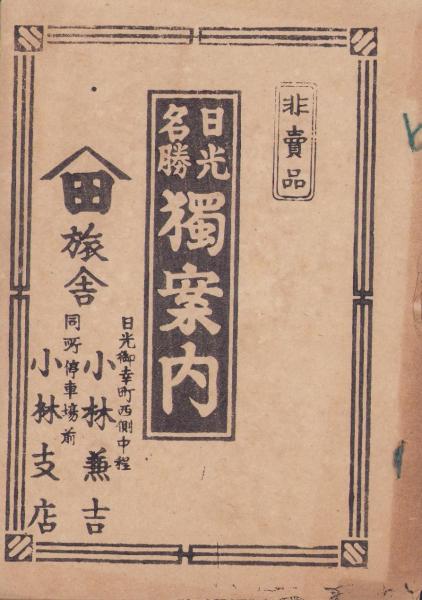 非賣品
日光名勝
獨案内
日光御幸町西側中程
小林兼吉
田旅舎
同所停車場前
小林支店